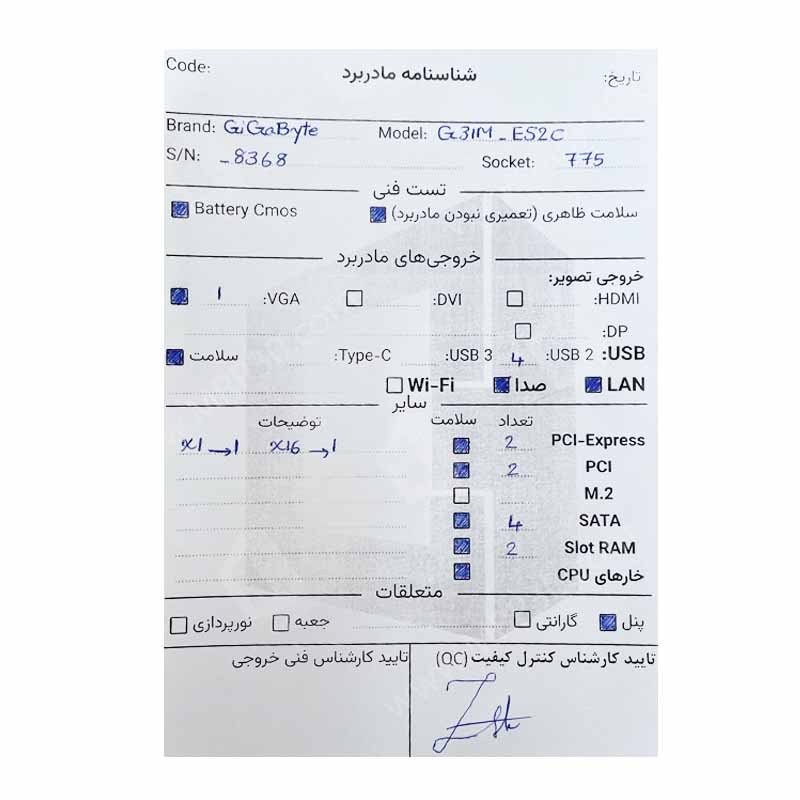 Code: شناسنامه مادربرد تاریخ:
Brand: GiGaByte Model: G31M_ES2C
S/N: _8368 Socket: 775
تست فنی
سلامت ظاهری (تعمیری نبودن مادربرد) Battery Cmos
خروجی‌های مادربرد
خروجی تصویر:
HDMI: DVI: VGA: 1
DP:
USB: USB 2: 4 USB 3: Type-C: سلامت
LAN صدا Wi-Fi
سایر
تعداد سلامت توضیحات
PCI-Express 2 X16 → 1 X1 → 1
PCI 2
M.2
SATA 4
Slot RAM 2
خارهای CPU
متعلقات
پنل گارانتی جعبه نورپردازی
تایید کارشناس کنترل کیفیت (QC) تایید کارشناس فنی خروجی